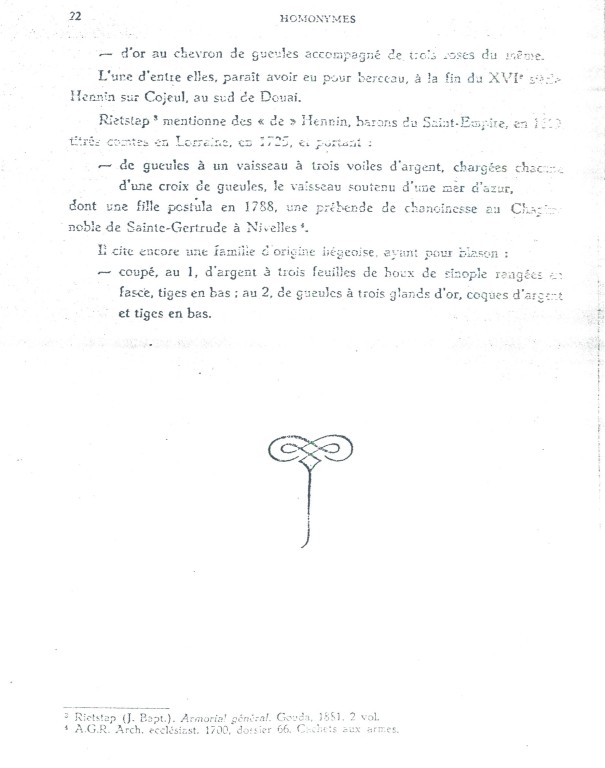 22 HOMONYMES
— d'or au chevron de gueules accompagné de trois roses du même.
L'une d'entre elles, paraît avoir eu pour berceau, à la fin du XVIᵉ siècle
Hennin sur Cojeul, au sud de Douai.
Rietstap ³ mentionne des « de » Hennin, barons du Saint-Empire, en
titrés comtes en Lorraine, en 1725, et portant :
— de gueules à un vaisseau à trois voiles d'argent, chargées chacune
d'une croix de gueules, le vaisseau soutenu d'une mer d'azur,
dont une fille postula en 1788, une prébende de chanoinesse au
noble de Sainte-Gertrude à Nivelles ⁴.
Il cite encore une famille d'origine liégeoise, ayant pour blason :
— coupé, au 1, d'argent à trois feuilles de houx de sinople rangées en
fasce, tiges en bas ; au 2, de gueules à trois glands d'or, coques d'argent
et tiges en bas.
³ Rietstap (J. Bapt.). Armorial général. Gouda, 1881, 2 vol.
⁴ A.G.R. Arch. ecclésiast. 1700, dossier 66. Cachets aux armes.